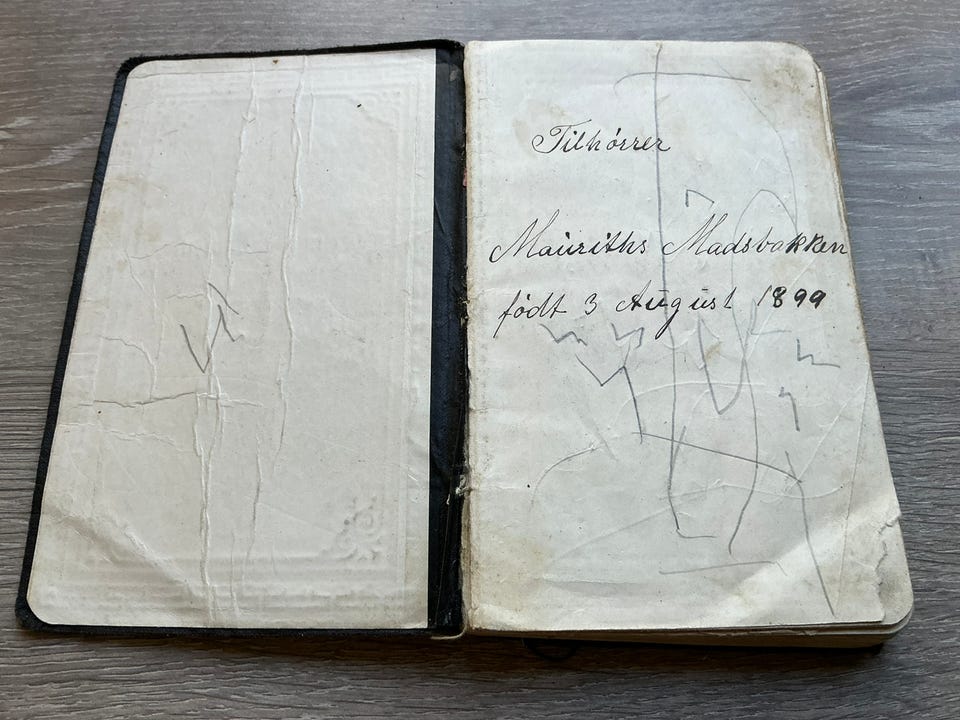 Tilhórrer
Mauriths Madsbakken
fódt 3 August 1899